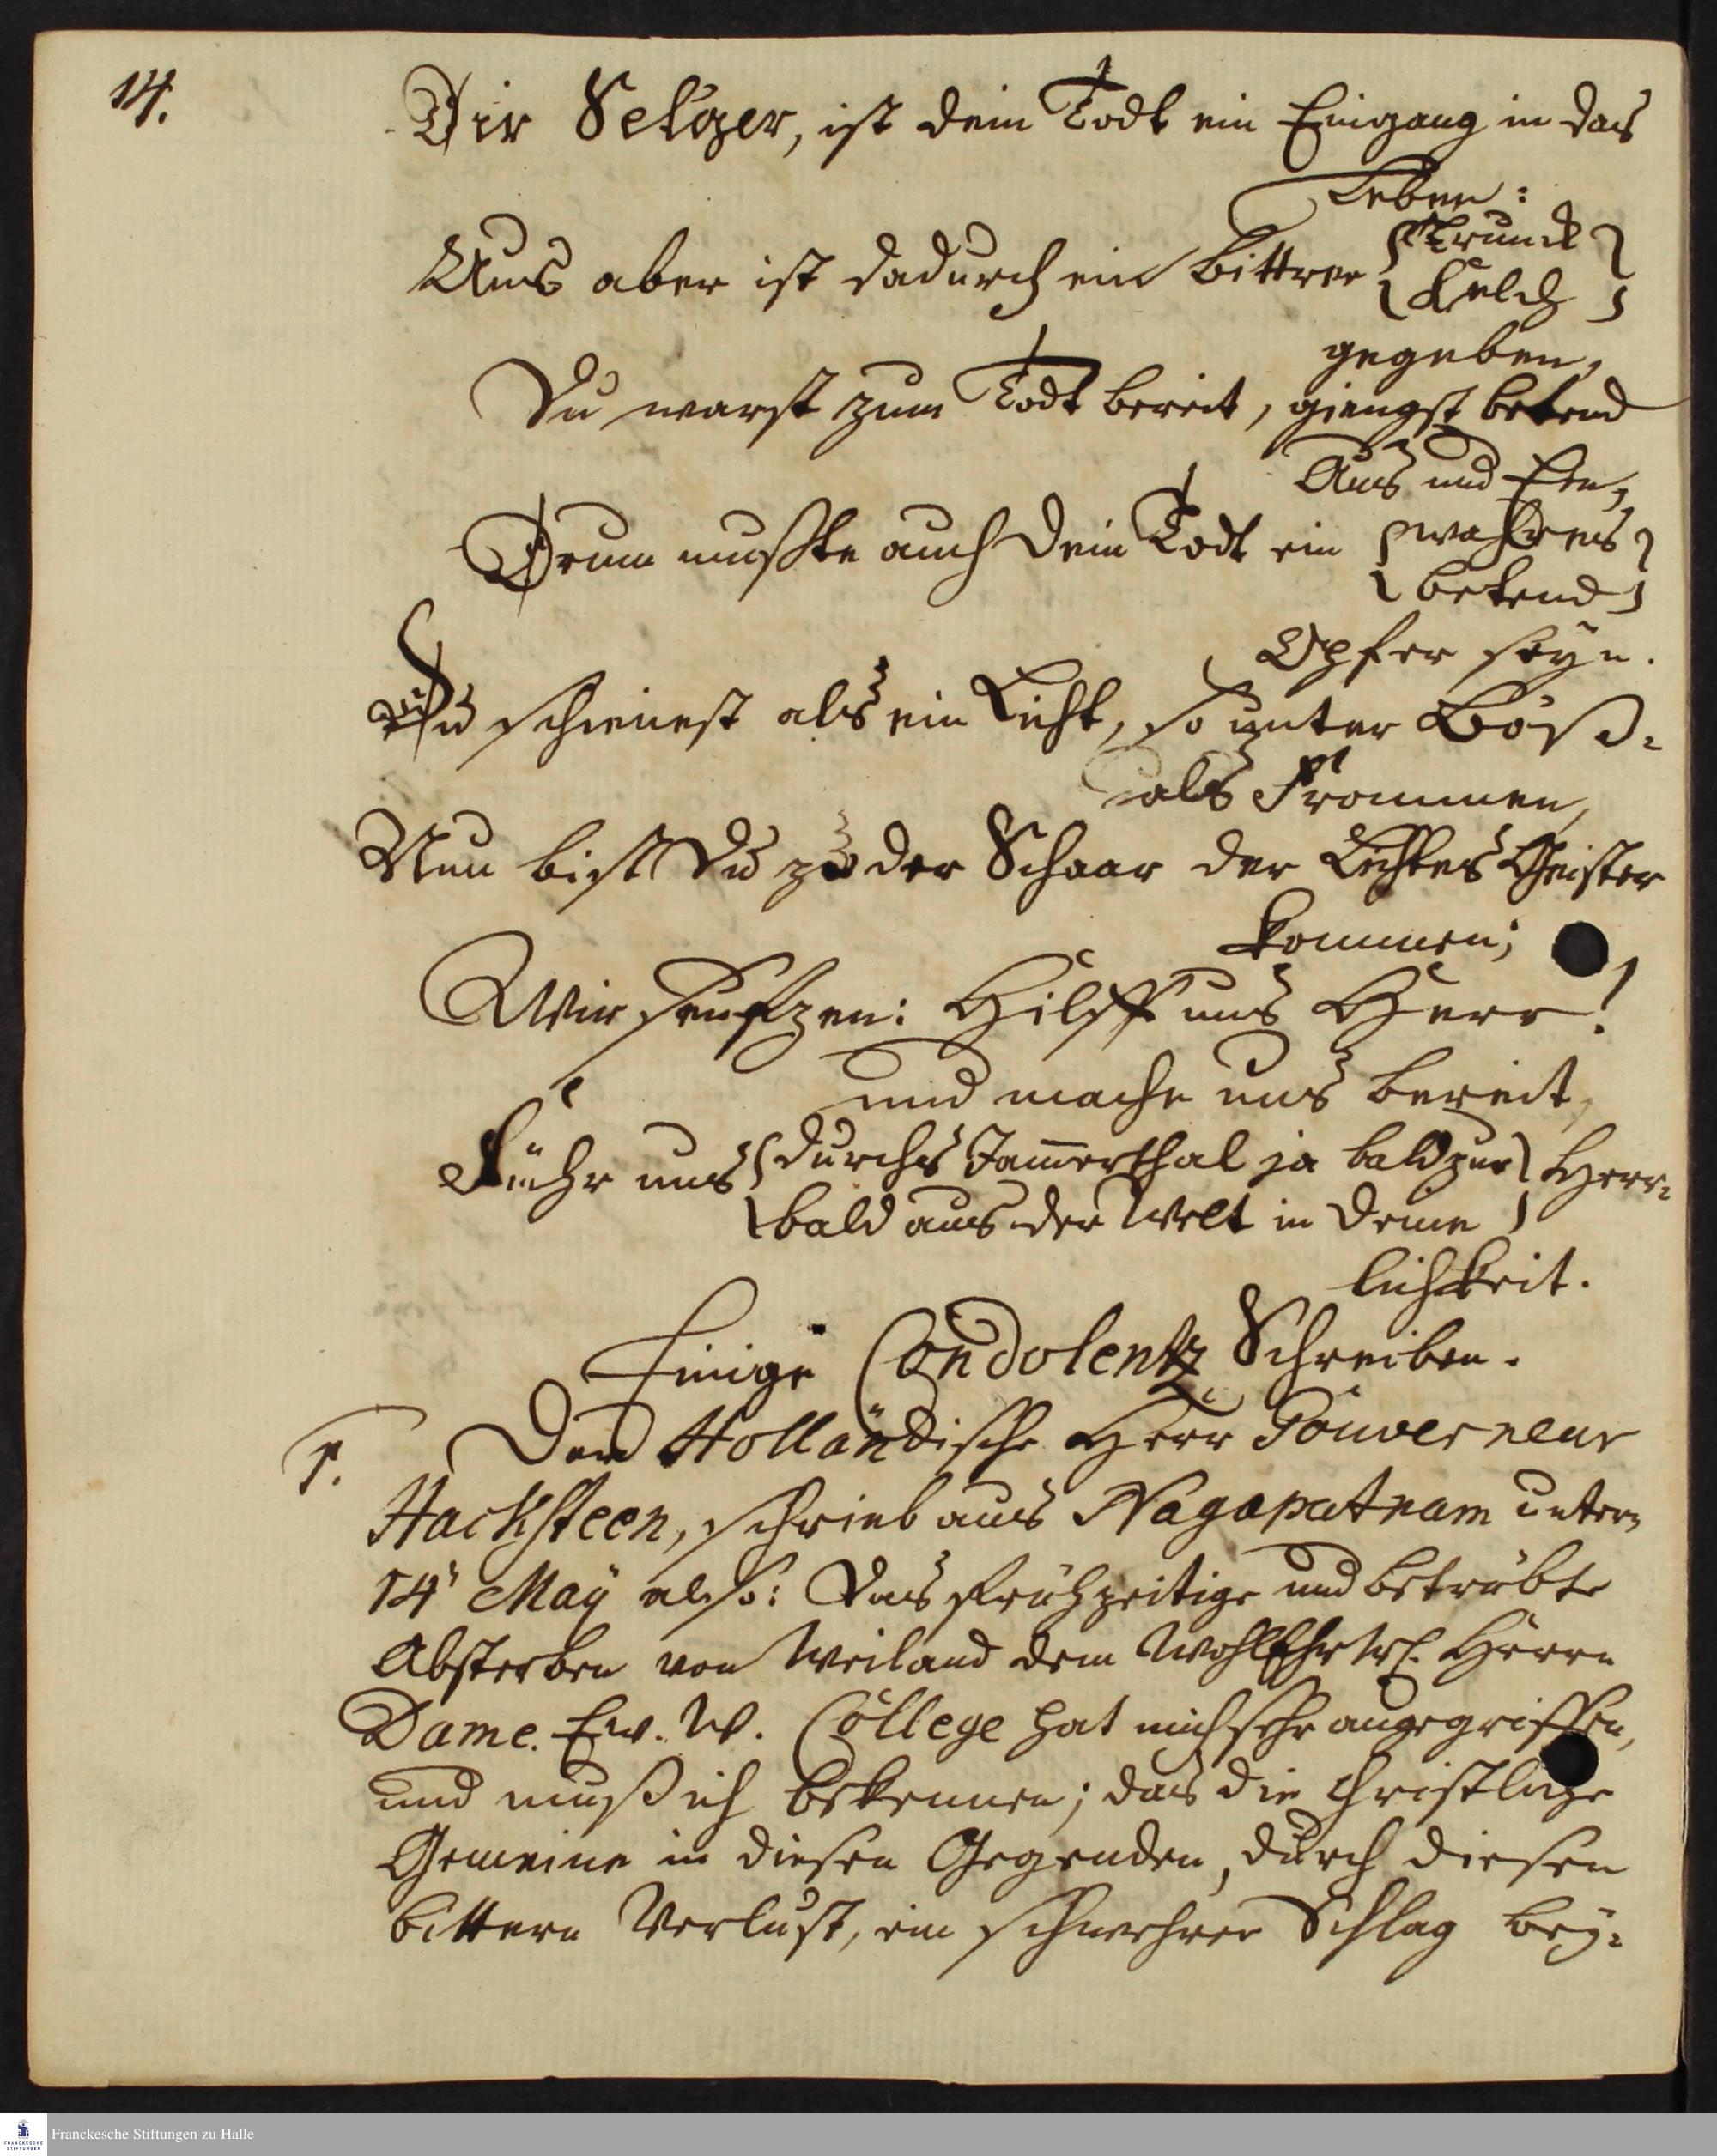 14.
Dir Sel'ger, ist dein Todt ein Eingang in das
Leben:
Uns aber ist dadurch ein bittrer {Trunck}
{Kelch}
gegeben,
Du warst zum Todt bereit, giengst betend
Aus und Ein,
Drum mußte auch dein Todt ein {wahres}
{betend}
Opfer seyn.
Du schienest als ein Licht, so unter Böß-
als Frommen,
Nun bist Du zu der Schaar der Lichtes Geister
kommen;
Wir seufzen: Hilff uns Herr!
und mache uns bereit,
Führ uns {durchs Jam̄erthal ja bald zur} Herr-
{bald aus der Welt in deine}
lichkeit.
Einige Condolentz Schreiben.
1. Der Holländische Herr Gouverneur
Hacksteen, schrieb aus Nagapatnam untern
14 May also: Das frühzeitige und betrübte
Absterben von Weiland dem WohlEhrw. Herrn
Dame. Ew. W. College hat mich sehr angegriffen,
und muß ich bekennen; das die Christliche
Gemeine in diesen Gegenden, durch diesen
bittern Verlust, ein schwehrer Schlag bey-
Franckesche Stiftungen zu Halle